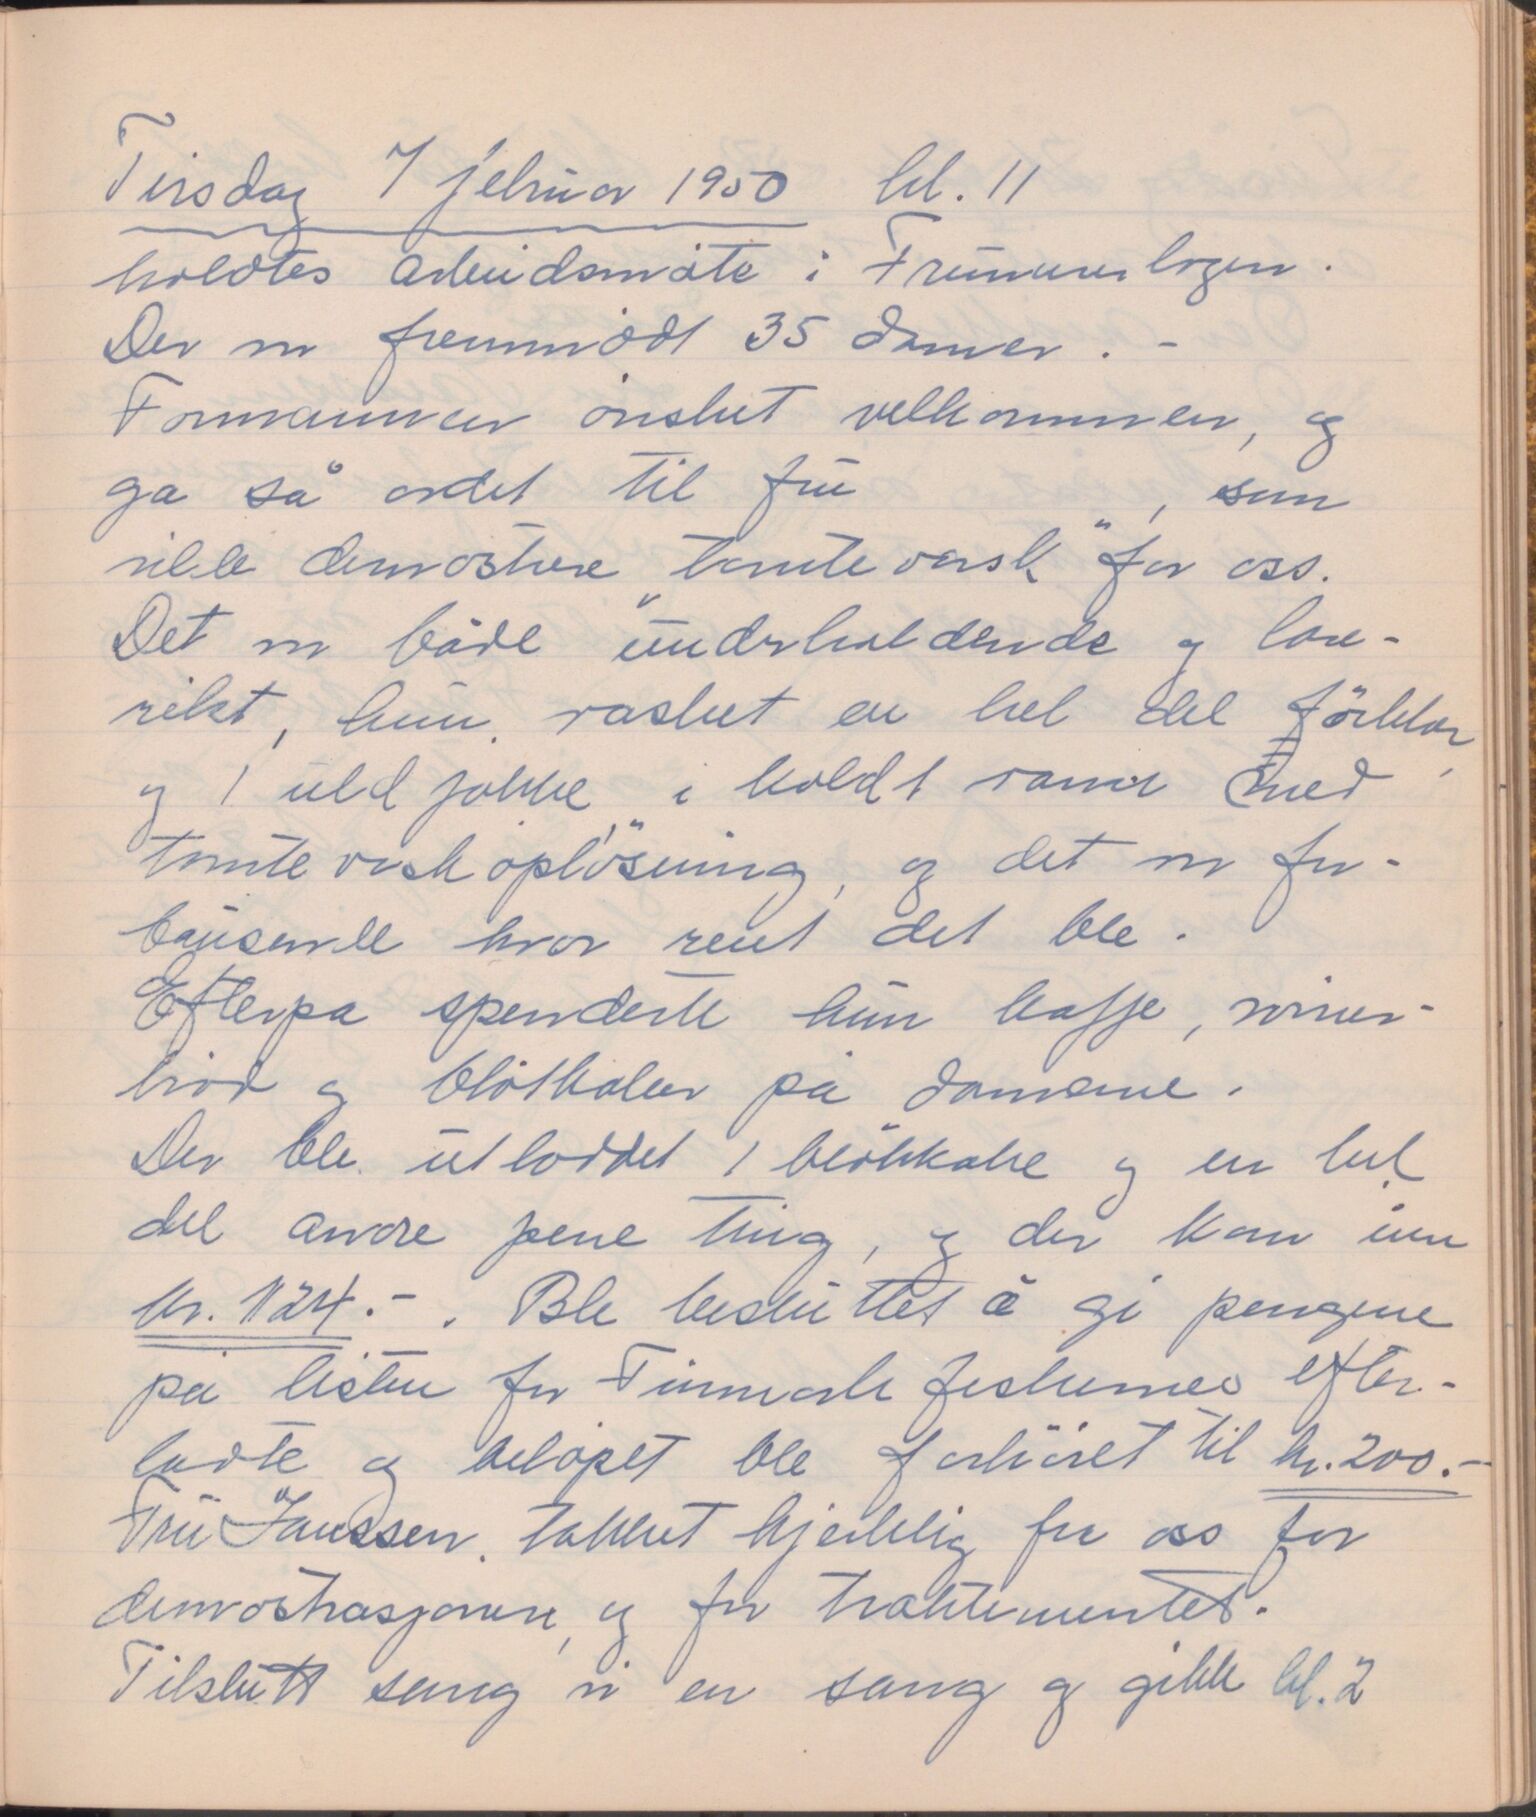 Tirsdag 7 februar 1950 kl. 11
holdtes arbeidsmøte i Frimurerlogen.
Der var fremmødt 35 damer. -
Formannen ønsket velkommen, og
ga så ordet til frü , som
vilde demostrere "tomtevask" for oss.
Det var både underholdende og lære-
rikt, hun vasket en hel del förklær
og 1 uldjakke i koldt vand med
"tomtevask"opløsning, og det var for-
bausende hvor rent det ble.
Efterpa spenderte hun kaffe, wiener-
brød og bløtkaker på damene.
Der ble utloddet 1 bløtkake og en hel
del andre pene ting, og der kom inn
kr. 124.-. Ble besluttet å gi pengene
på listen for Finmark fiskernes efter-
ladte og beløpet ble forhöiet til kr. 200.-
Frü Janssen takket hjertelig fra oss for
demostrasjonen, og for traktementet.
Tilslutt sang vi en sang og gikk kl. 2